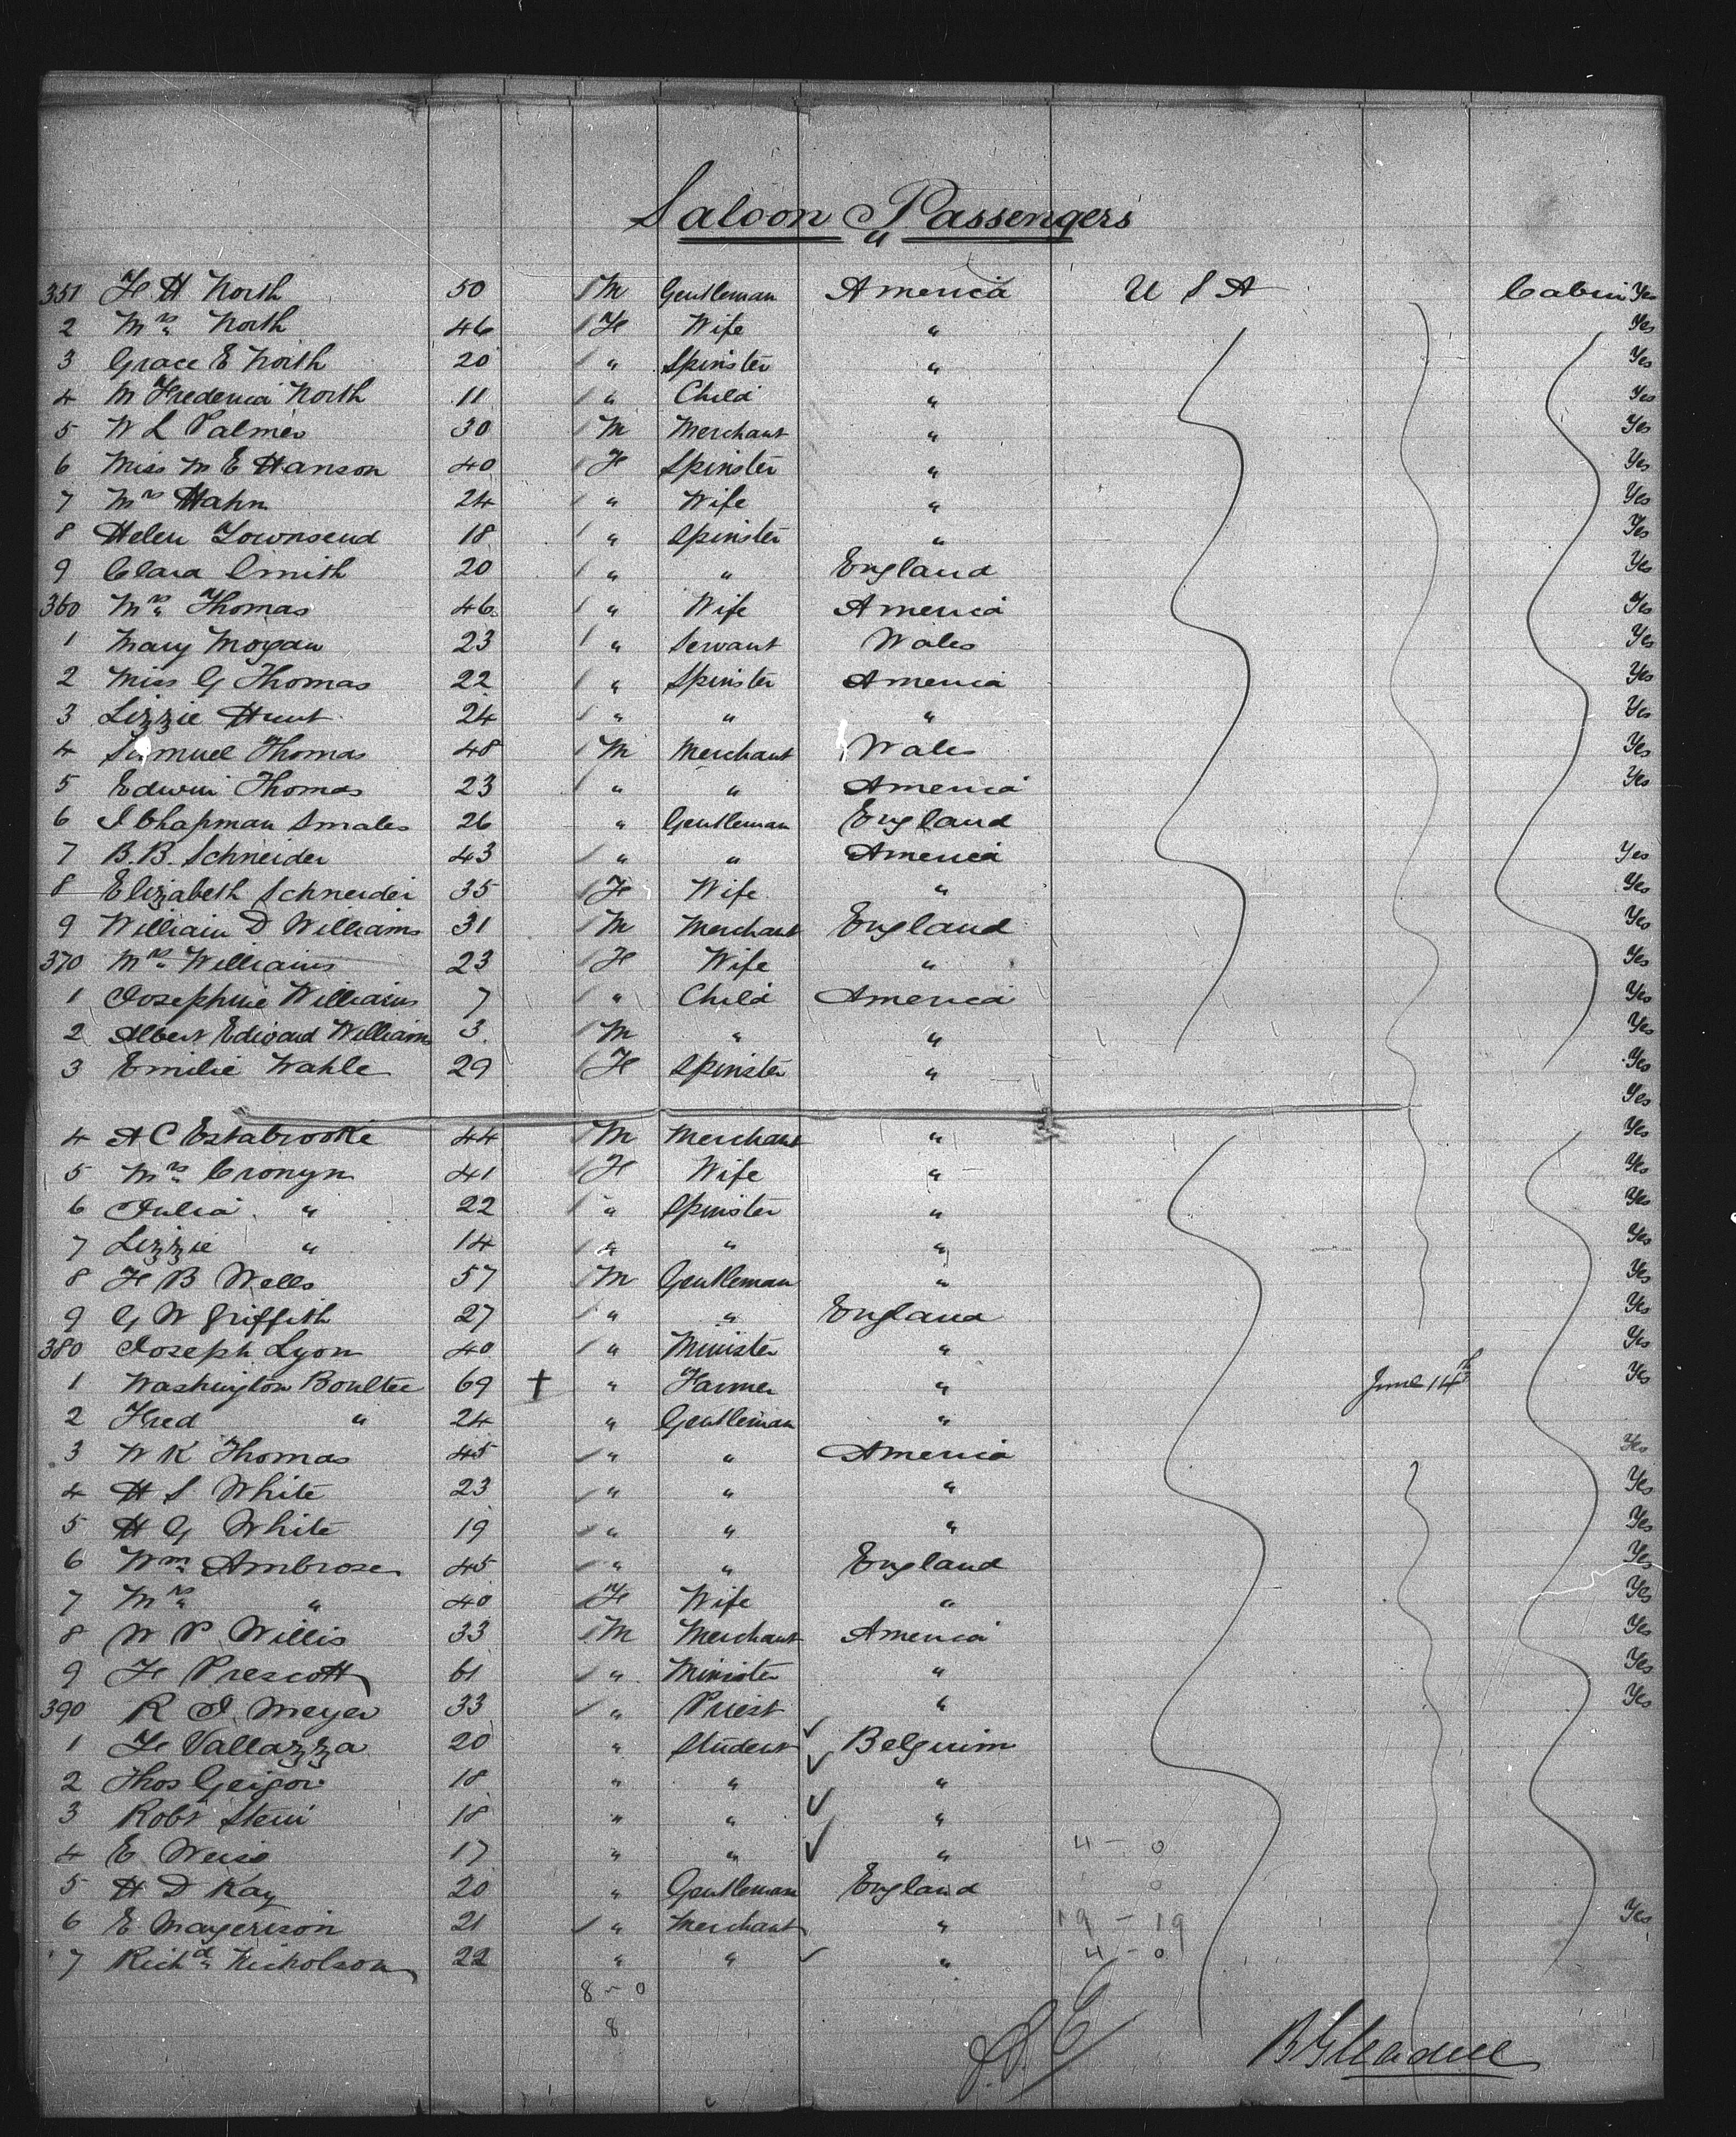 Saloon Passengers
351 F H North 50 M Gentleman America U S A Cabin Yes
2 Mrs North 46 F Wife " Yes
3 Grace E North 20 " Spinster " Yes
4 M Frederica North 11 " Child " Yes
5 W L Palmer 30 M Merchant " Yes
6 Miss M E Hanson 40 F Spinster " Yes
7 Mrs Hahn 24 " Wife " Yes
8 Helen Townsend 18 " Spinster " Yes
9 Clara Smith 20 " " England Yes
360 Mrs Thomas 46 " Wife America Yes
1 Mary Morgan 23 " Servant Wales Yes
2 Miss G Thomas 22 " Spinster America Yes
3 Lizzie Hunt 24 " " " Yes
4 Samuel Thomas 48 M Merchant Wales Yes
5 Edwin Thomas 23 " " America Yes
6 J Chapman Smales 26 " Gentleman England
7 B.B. Schneider 43 " " America Yes
8 Elizabeth Schneider 35 F Wife " Yes
9 William D Williams 31 M Merchant England Yes
370 Mrs Williams 23 F Wife " Yes
1 Josephine Williams 7 " Child America Yes
2 Albert Edward Williams 3. M " " Yes
3 Emilie Wahle 29 F Spinster " Yes
Yes
4 A C Estabrooke 44 M Merchant " Yes
5 Mrs Cronyn 41 F Wife " Yes
6 Julia " 22 " Spinster " Yes
7 Lizzie " 14 " " " Yes
8 F B Wells 57 M Gentleman " Yes
9 G W Griffith 27 " " England Yes
380 Joseph Lyon 40 " Minister " Yes
1 Washington Boultee 69 + " Farmer " June 14th Yes
2 Fred " 24 " Gentleman "
3 W K Thomas 45 " " America Yes
4 H S White 23 " " " Yes
5 H G White 19 " " " Yes
6 Wm Ambrose 45 " " England Yes
7 Mrs " 40 F Wife " Yes
8 W P Willis 33 M Merchant America Yes
9 F Prescott 61 " Minister " Yes
390 R J Meyer 33 " Priest " Yes
1 F Vallazza 20 " Student ✓ Belgium
2 Thos Geiger 18 " " ✓ "
3 Robt Stein 18 " " ✓ "
4 E Weiss 17 " " ✓ " 4 - 0
5 H D Kay 20 " Gentleman England 0
6 E Mayerison 21 " Merchant " 19 - 19 Yes
7 Richd Nicholson 22 " " ✓ " 4 - 0
8 - 0
8